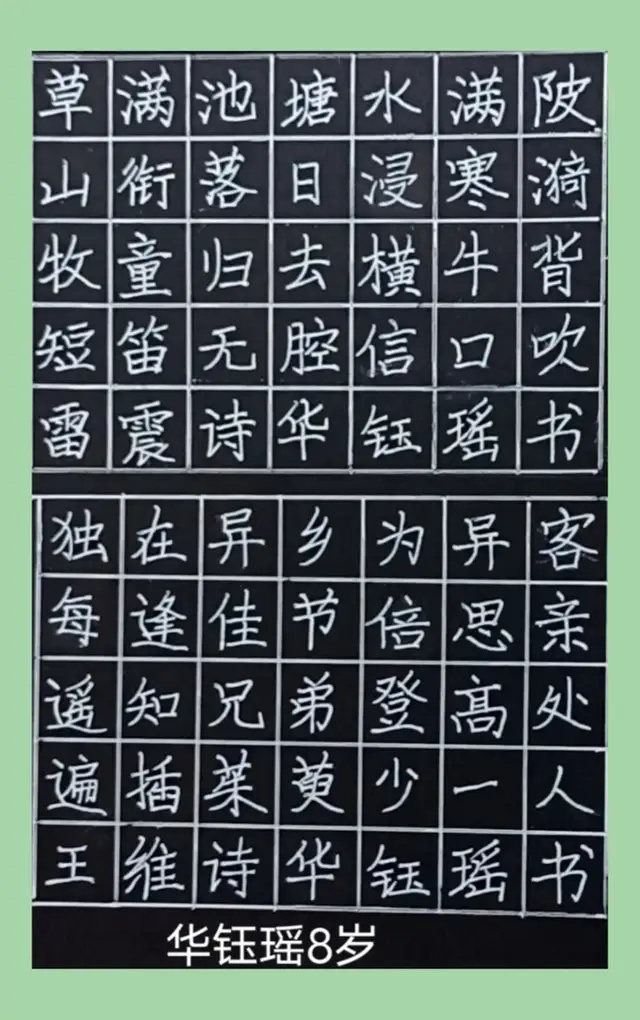 草满池塘水满陂
山衔落日浸寒漪
牧童归去横牛背
短笛无腔信口吹
雷震诗华钰瑶书
独在异乡为异客
每逢佳节倍思亲
遥知兄弟登高处
遍插茱萸少一人
王维诗华钰瑶书
华钰瑶8岁